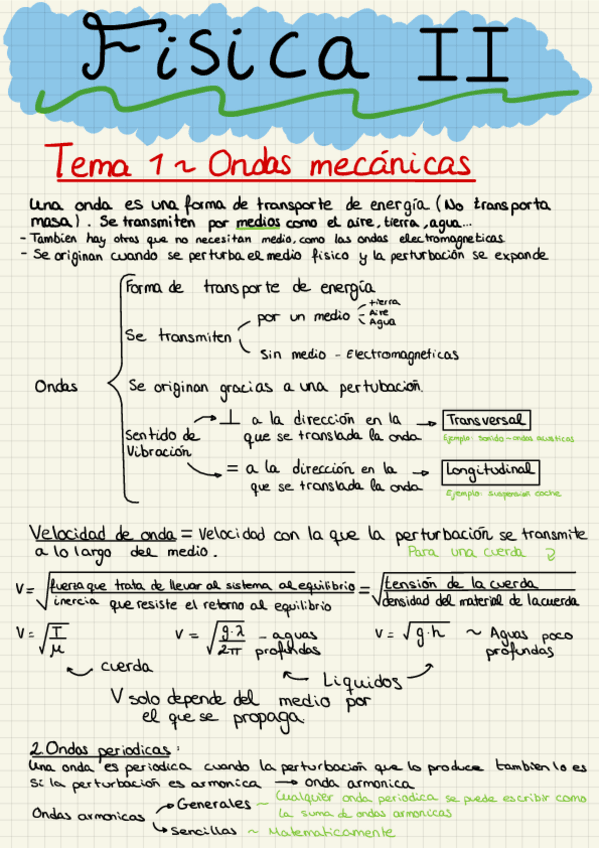 Fisica II
Tema 1 ~ Ondas mecánicas
Una onda es una forma de transporte de energía (No transporta
masa). Se transmiten por medios como el aire, tierra, agua...
- Tambien hay otras que no necesitan medio, como las ondas electromagneticas
- Se originan cuando se perturba el medio físico y la perturbación se expande
Forma de transporte de energía
Se transmiten
por un medio
tierra
Aire
Agua
Sin medio - Electromagneticas
Ondas
Se originan gracias a una pertubación.
Sentido de
Vibración
⊥ a la dirección en la
que se translada la onda
→ Transversal
Ejemplo: sonido - ondas acusticas
= a la dirección en la
que se translada la onda
→ Longitudinal
Ejemplo: suspension coche
Velocidad de onda = Velocidad con la que la perturbación se transmite
a lo largo del medio.
Para una cuerda
V = √(fuerza que trata de llevar al sistema al equilibrio / inercia que resiste el retorno al equilibrio) = √(tensión de la cuerda / densidad del material de la cuerda)
V = √(T/μ)
cuerda
V = √(g·λ/2π) - aguas profundas
V = √g·h ~ Aguas poco profundas
Liquidos
V solo depende del medio por
el que se propaga.
2. Ondas periodicas:
Una onda es periodica cuando la perturbación que lo produce tambien lo es
Si la perturbación es armonica → onda armonica
Ondas armonicas
Generales ~ Cualquier onda periodica se puede escribir como
la suma de ondas armonicas
Sencillas ~ Matematicamente